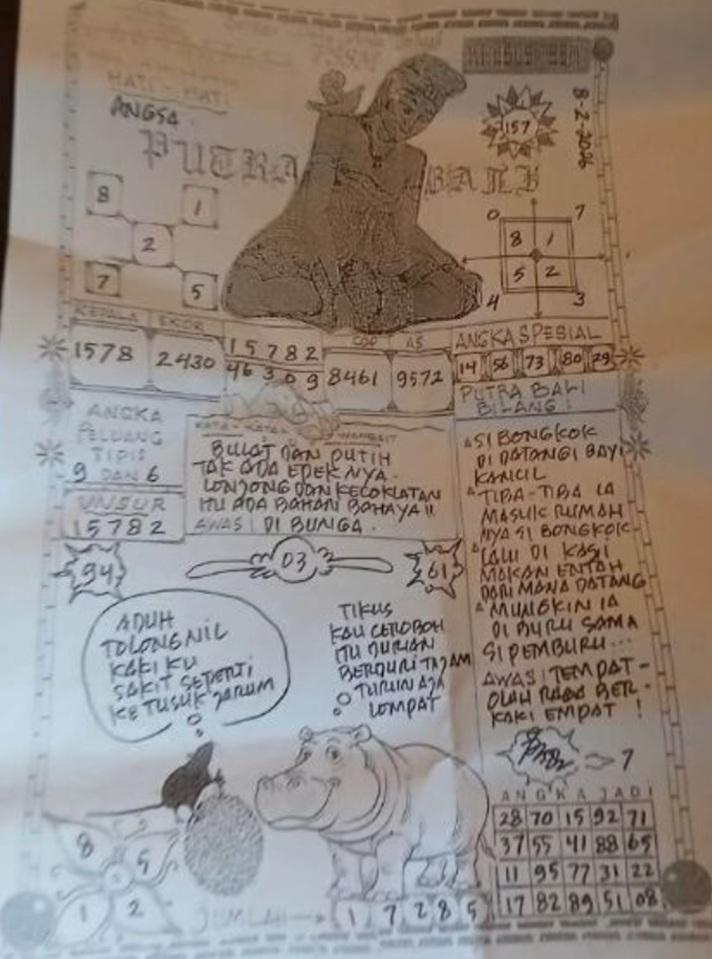 HATI - HATI
ANGSA
PUTRA BALI
157
8-2-2026
8 1
2
7 5
0 7
8 1
5 2
4 3
KEPALA EKOR
1578 2430
15782
46309
COP AS
8461 9572
ANGKA SPESIAL
14 56 73 80 29
PUTRA BALI
BILANG!
ANGKA
PELUANG
TIPIS
9 DAN 6
UNSUR
15782
KATA - KATA WANGSIT
BULAT DAN PUTIH
TAK ADA EDEK NYA.
LONJONG DAN KECOKLATAN
ITU ADA BAHAN BAHAYA!!
AWAS! DI BUNGA.
SI BONGKOK
DI DATANGI BAYI
KANCIL
TIBA-TIBA IA
MASUK RUMAH
NYA SI BONGKOK
LALU DI KASI
MAKAN ENTAH
DARI MANA DATANG
MUNGKIN IA
DI BURU SAMA
SI PEMBURU...
AWAS! TEMPAT-
OLAH RAGA BER-
KAKI EMPAT !
94
03
61
ADUH
TOLONG NIL
KAKI KU
SAKIT SEPERTI
KETUSUK JARUM
TIKUS
KAU CEROBOH
ITU DURIAN
BERDURI TAJAM
TURUN AJA
LOMPAT
7
ANGKA JADI
28 70 15 92 71
37 55 41 88 65
11 95 77 31 22
17 82 89 51 08
8 5
1 2
JUMLAH
1 7 2 8 5